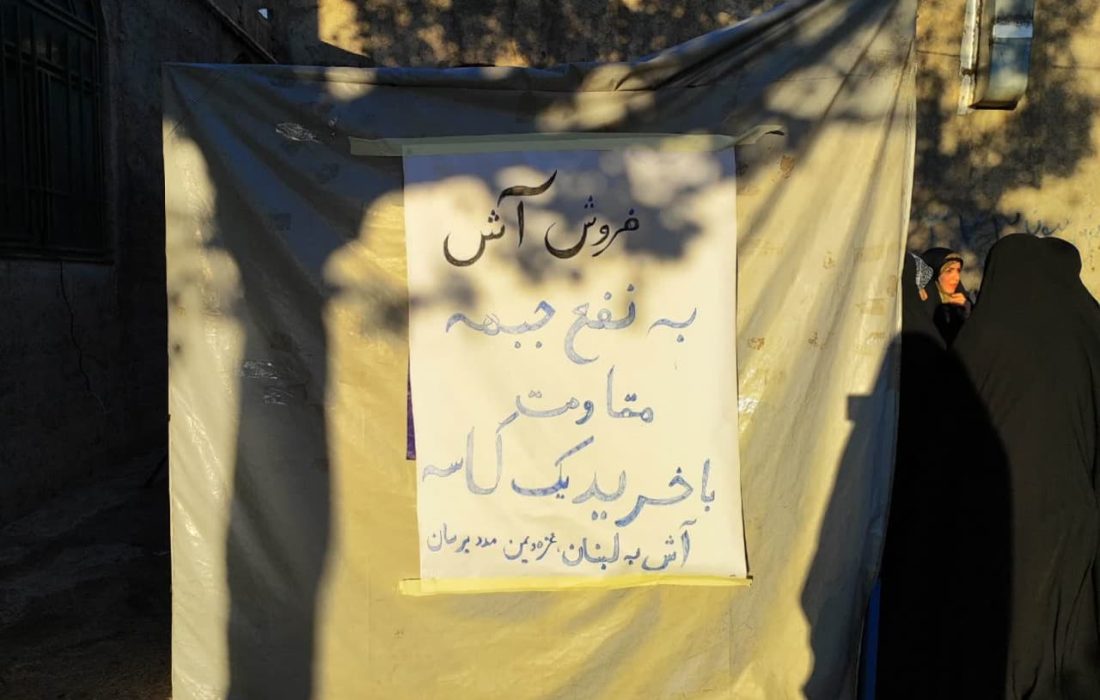 فروش آش
به نفع جبهه
مقاومت
با خرید یک کاسه
آش به لبنان، غزه و یمن مدد برسان